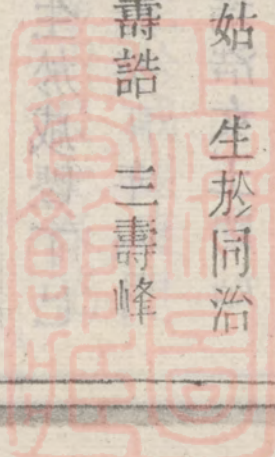 姑 生於同治
壽誥 三壽峰